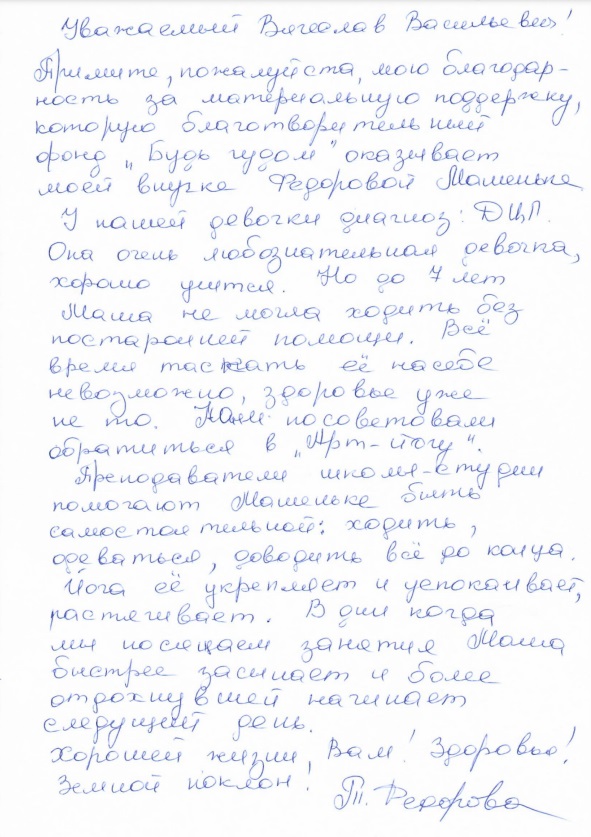 Уважаемый Вячеслав Васильевич!
Примите, пожалуйста, мою благодар-
ность за материальную поддержку,
которую благотворительный
фонд „Будь чудом" оказывает
моей внучке Федоровой Машеньке
У нашей девочки диагноз: ДЦП.
Она очень любознательная девочка,
хорошо учится. Но до 7 лет
Маша не могла ходить без
посторонней помощи. Всё
время таскать её на себе
невозможно, здоровье уже
не то. Нам посоветовали
обратиться в „Арт-йогу".
Преподаватели школы-студии
помогают Машеньке быть
самостоятельной: ходить,
одеваться, доводить всё до конца.
Йога её укрепляет и успокаивает,
растягивает. В дни когда
мы посещаем занятия Маша
быстрее засыпает и более
отдохнувшей начинает
следущий день.
Хорошей жизни, Вам! Здоровья!
Земной поклон! Т. Федорова